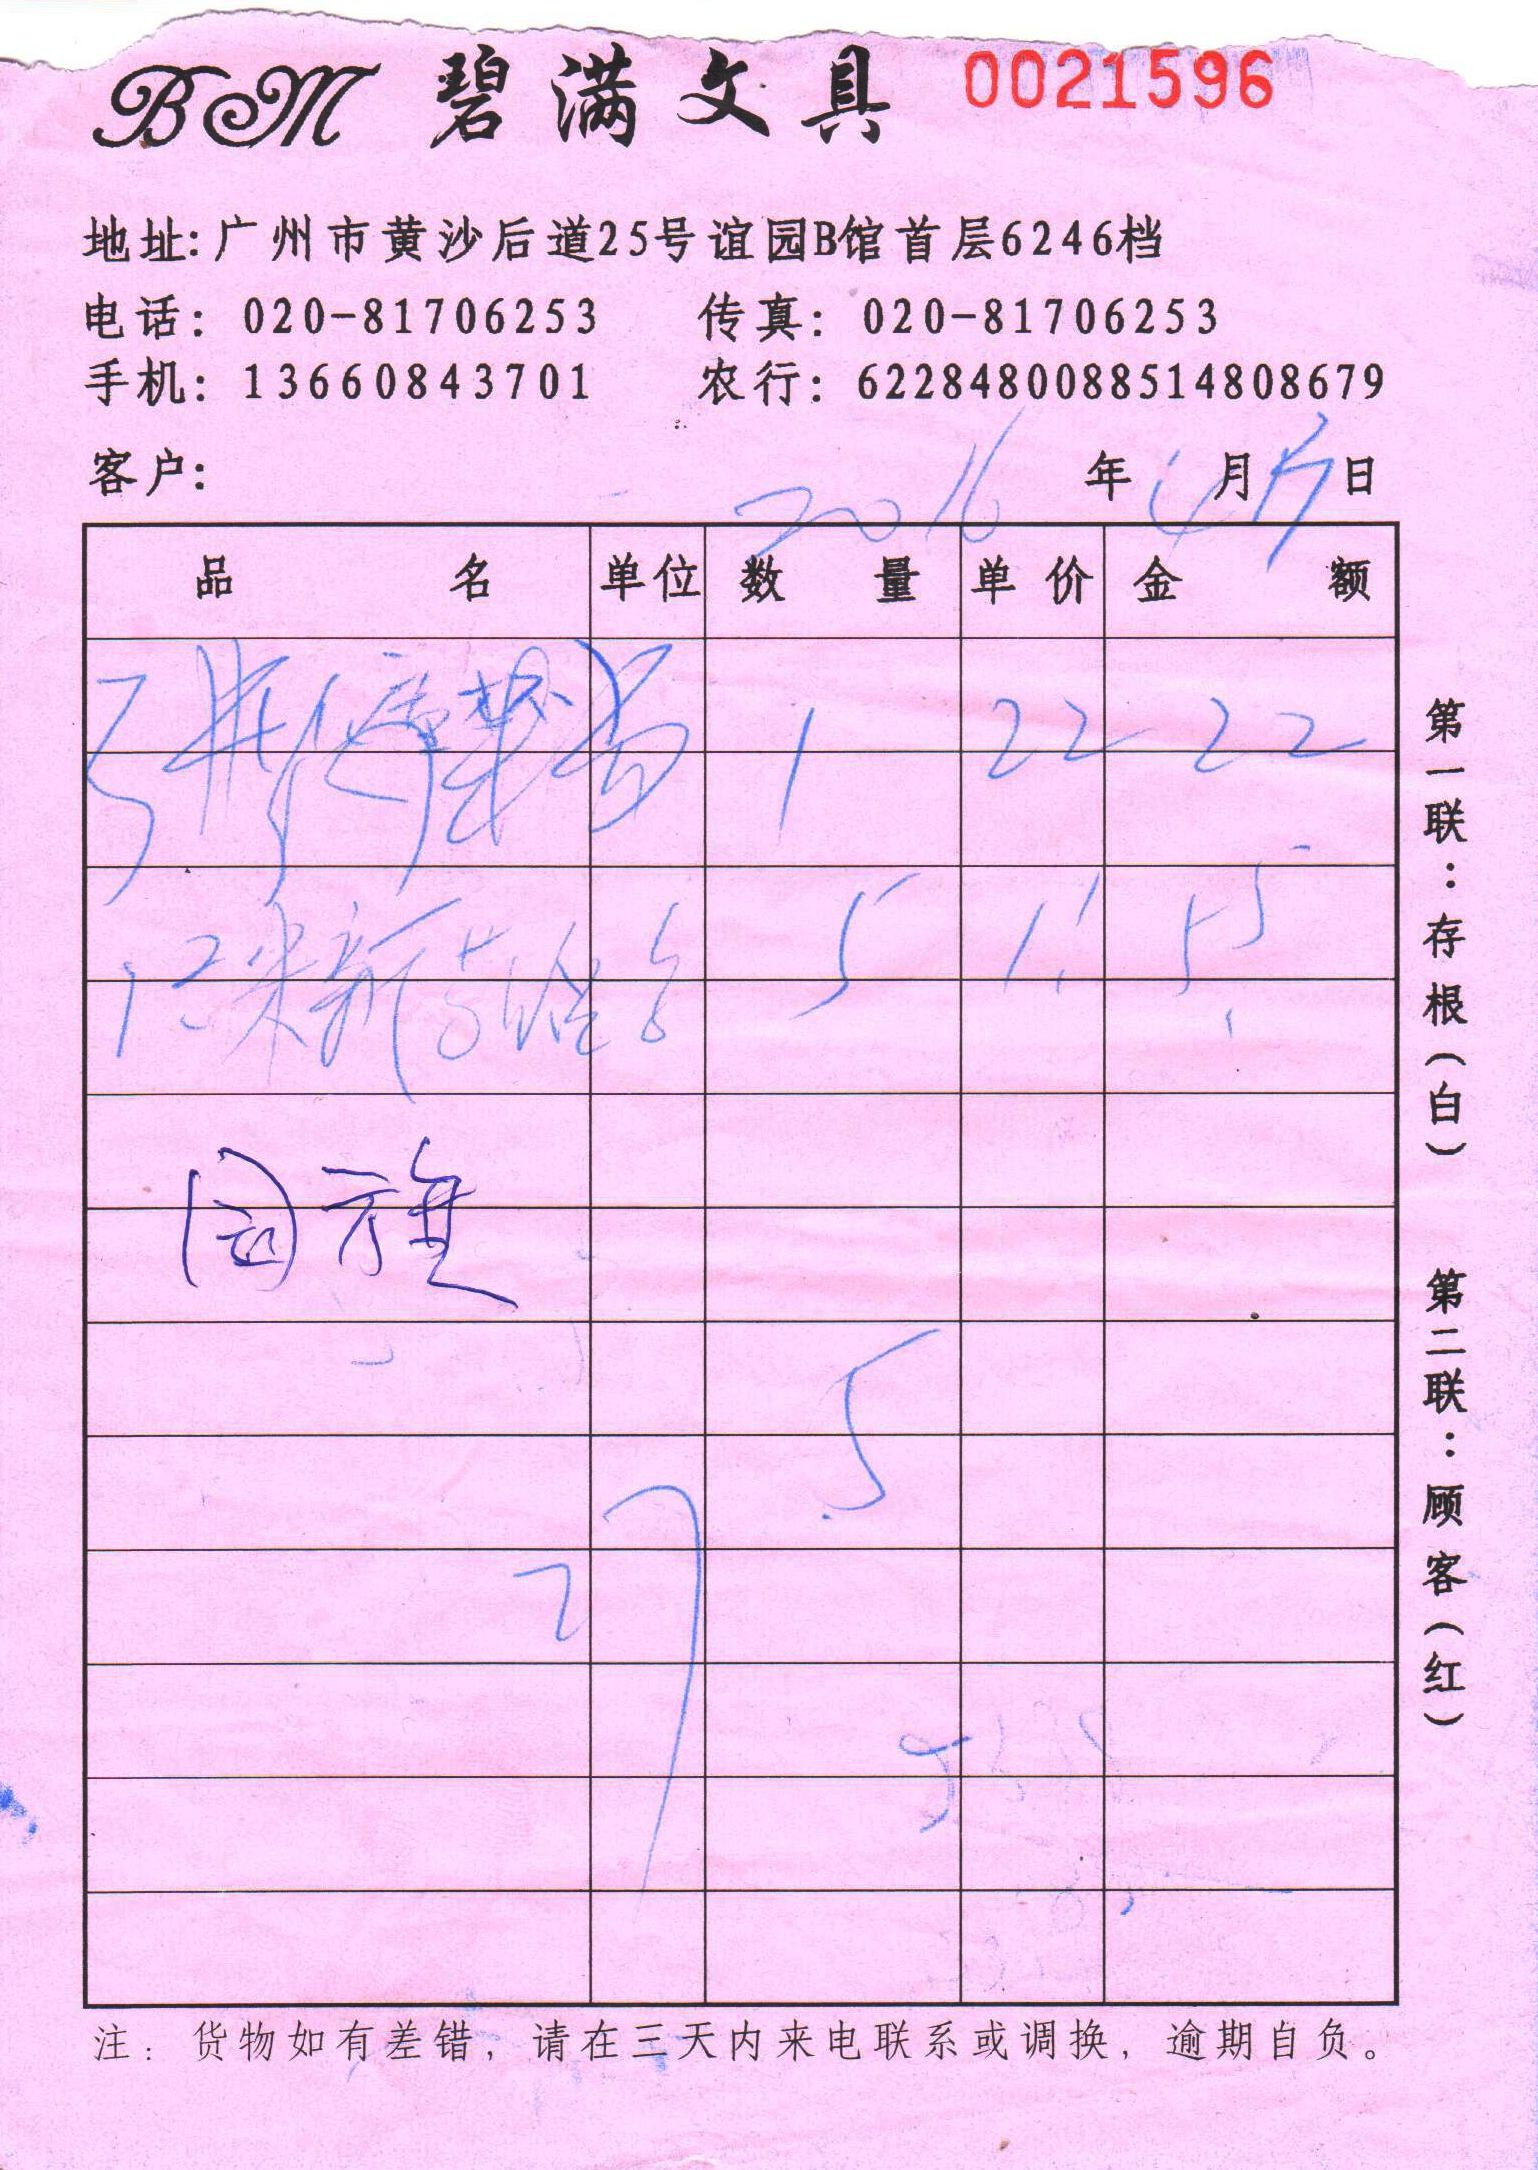 BM 碧满文具 0021596
地址:广州市黄沙后道25号谊园B馆首层6246档
电话: 020-81706253 传真: 020-81706253
手机: 13660843701 农行: 6228480088514808679
客户: 2016年 月 日
品名 单位 数量 单价 金额
1 22 22
5 1.1 5.5
国旗
5
27.5
注: 货物如有差错, 请在三天内来电联系或调换, 逾期自负。
第一联:存根(白)
第二联:顾客(红)